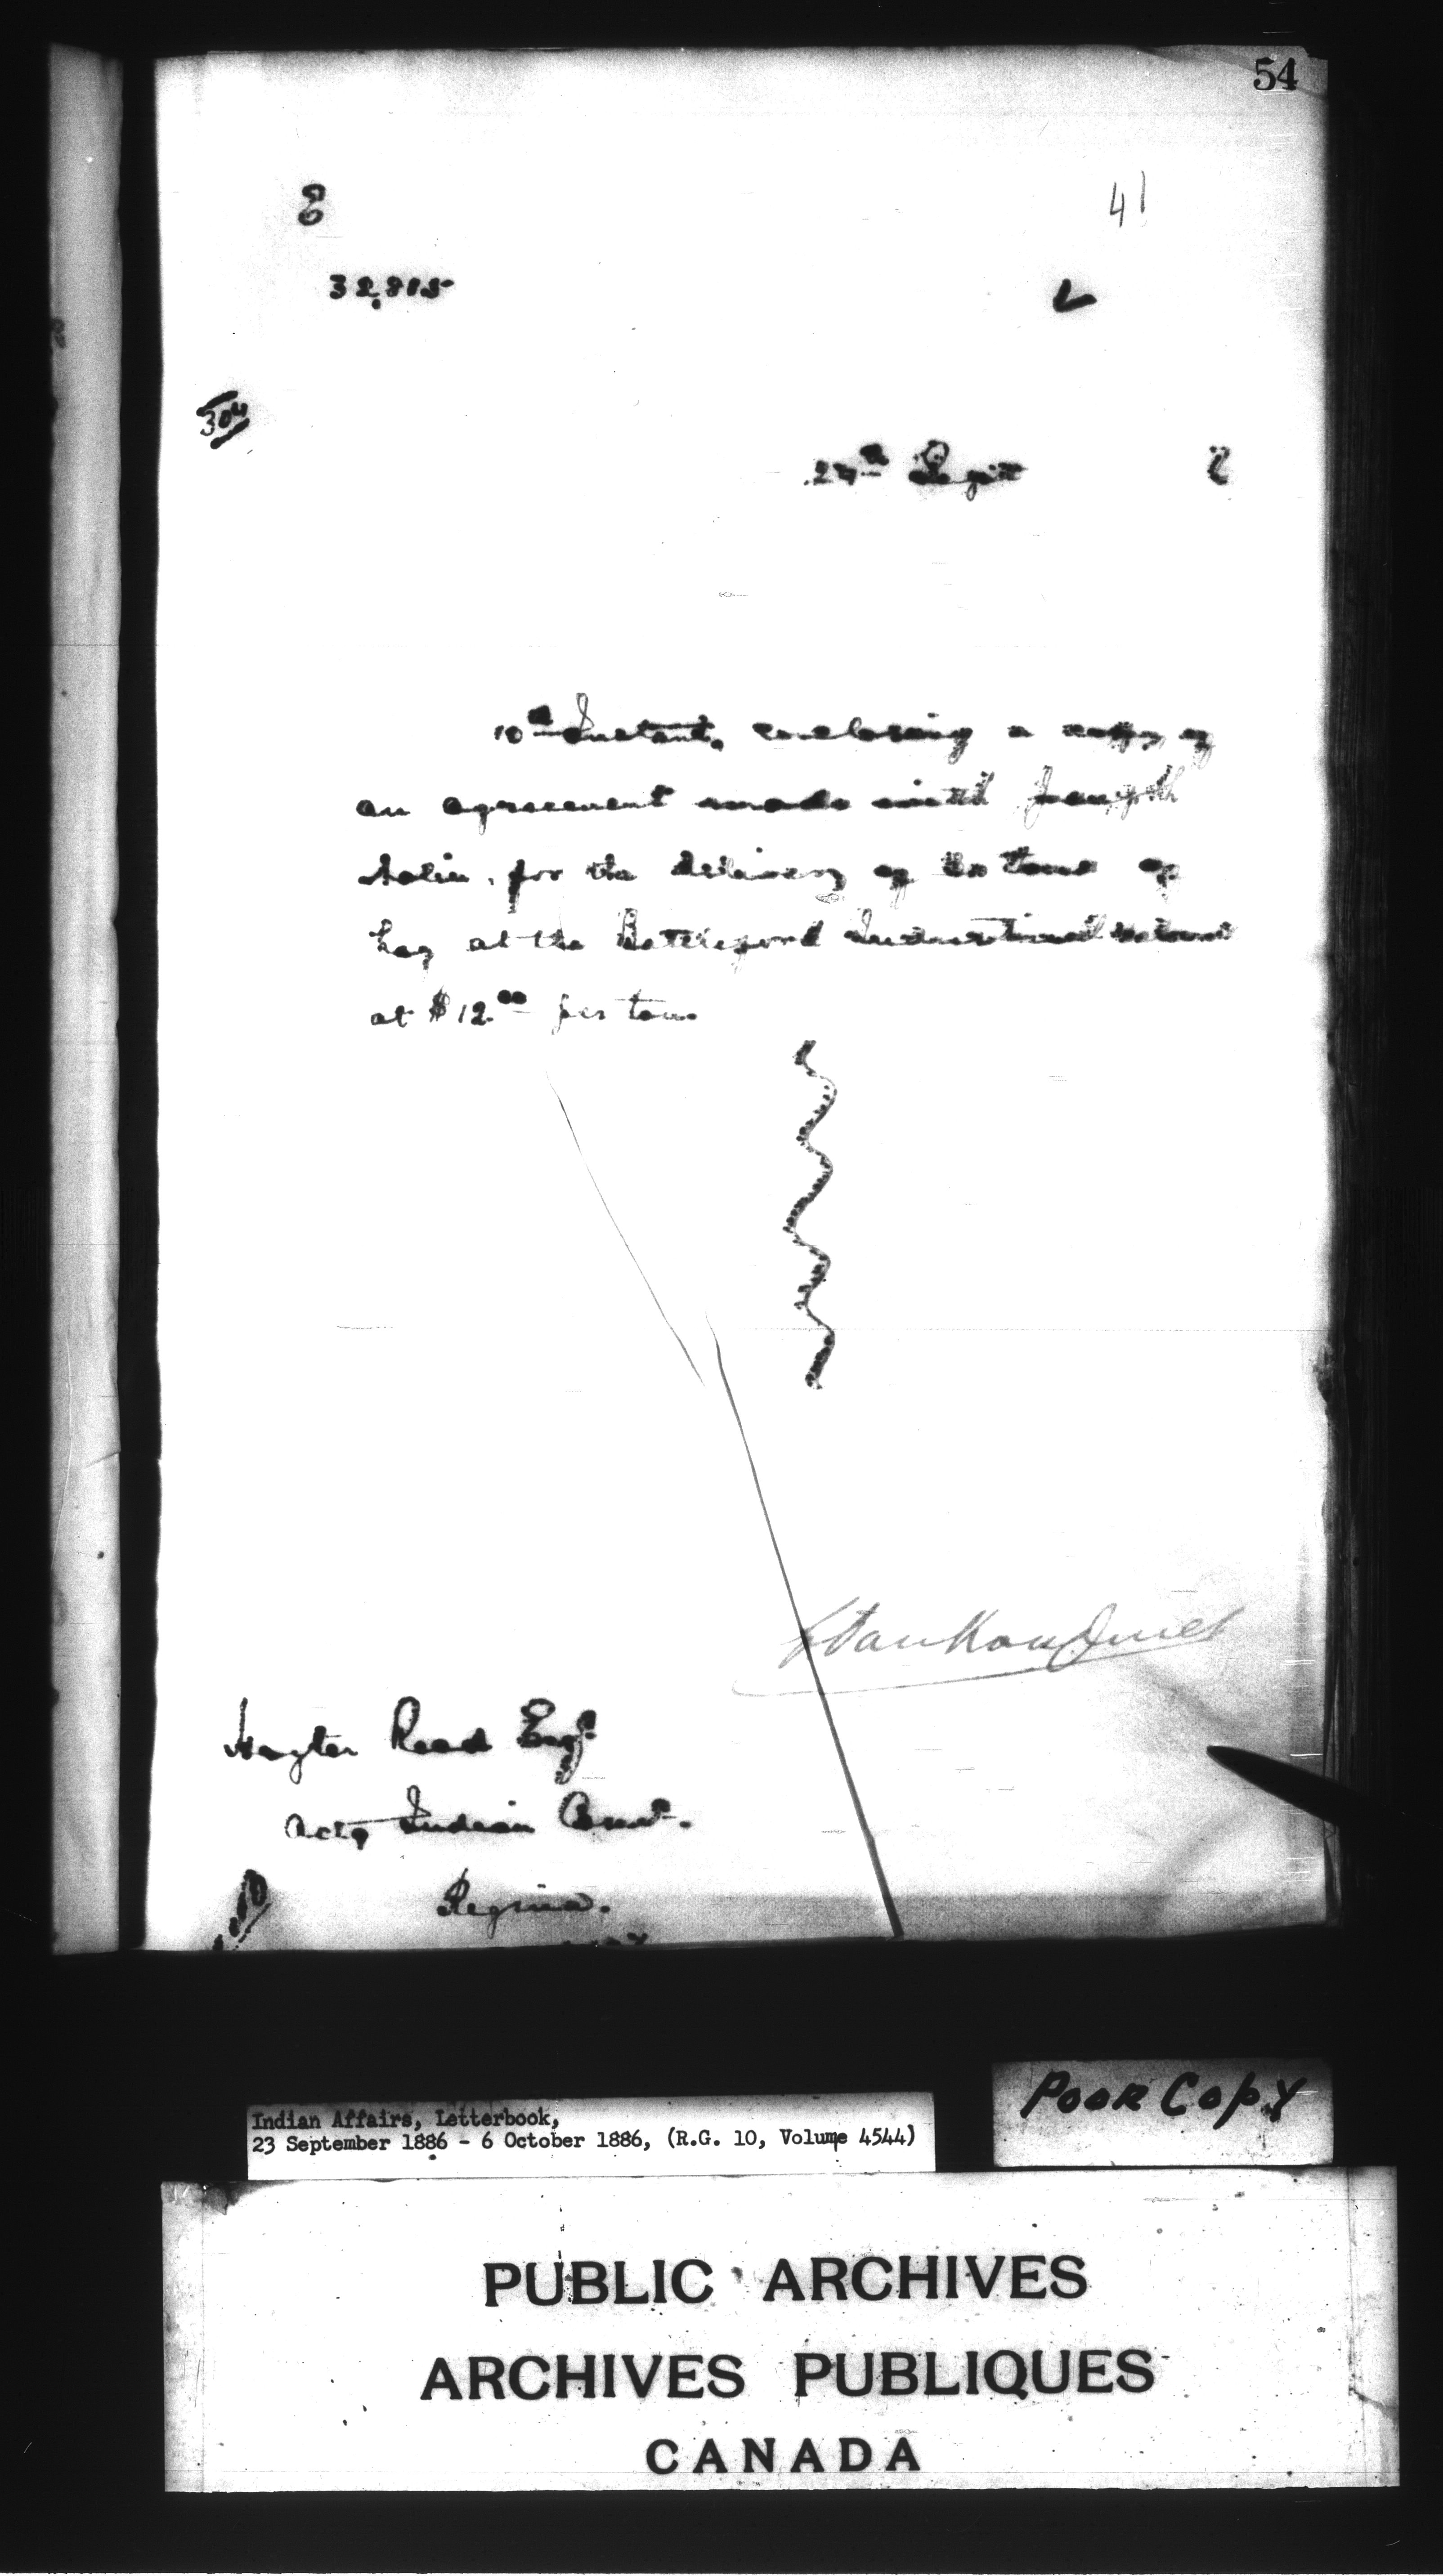 54
E
41
32,815
304
Sept 6
10th Instant, enclosing a copy of
an agreement made with Joseph
for the delivery of tons of
hay at the Battleford Industrial School
at $12.00 per ton.
L Vankoughnet
Hayter Reed Esq.
Actg Indian Comr.
Regina.
Poor Copy
Indian Affairs, Letterbook,
23 September 1886 - 6 October 1886, (R.G. 10, Volume 4544)
PUBLIC ARCHIVES
ARCHIVES PUBLIQUES
CANADA